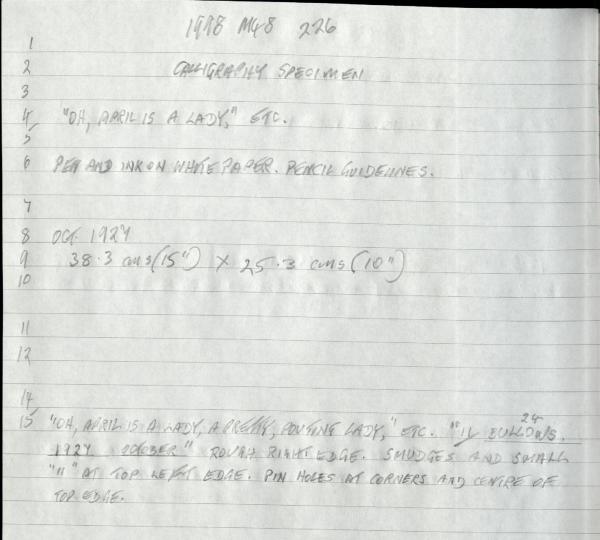 1998 M48 226
1
2 CALLIGRAPHY SPECIMEN
3
4 "OH, APRIL IS A LADY," ETC.
5
6 PEN AND INK ON WHITE PAPER. PENCIL GUIDELINES.
7
8 OCT. 1924
9 38.3 cms (15") X 25.3 cms (10")
10
11
12
14
15 "OH, APRIL IS A LADY, A PRETTY, POUTING LADY," ETC. "11 BULLOWS.
24
1924 OCTOBER" ROUGH RIGHT EDGE. SMUDGES AND SMALL
"11" AT TOP LEFT EDGE. PIN HOLES AT CORNERS AND CENTRE OF
TOP EDGE.